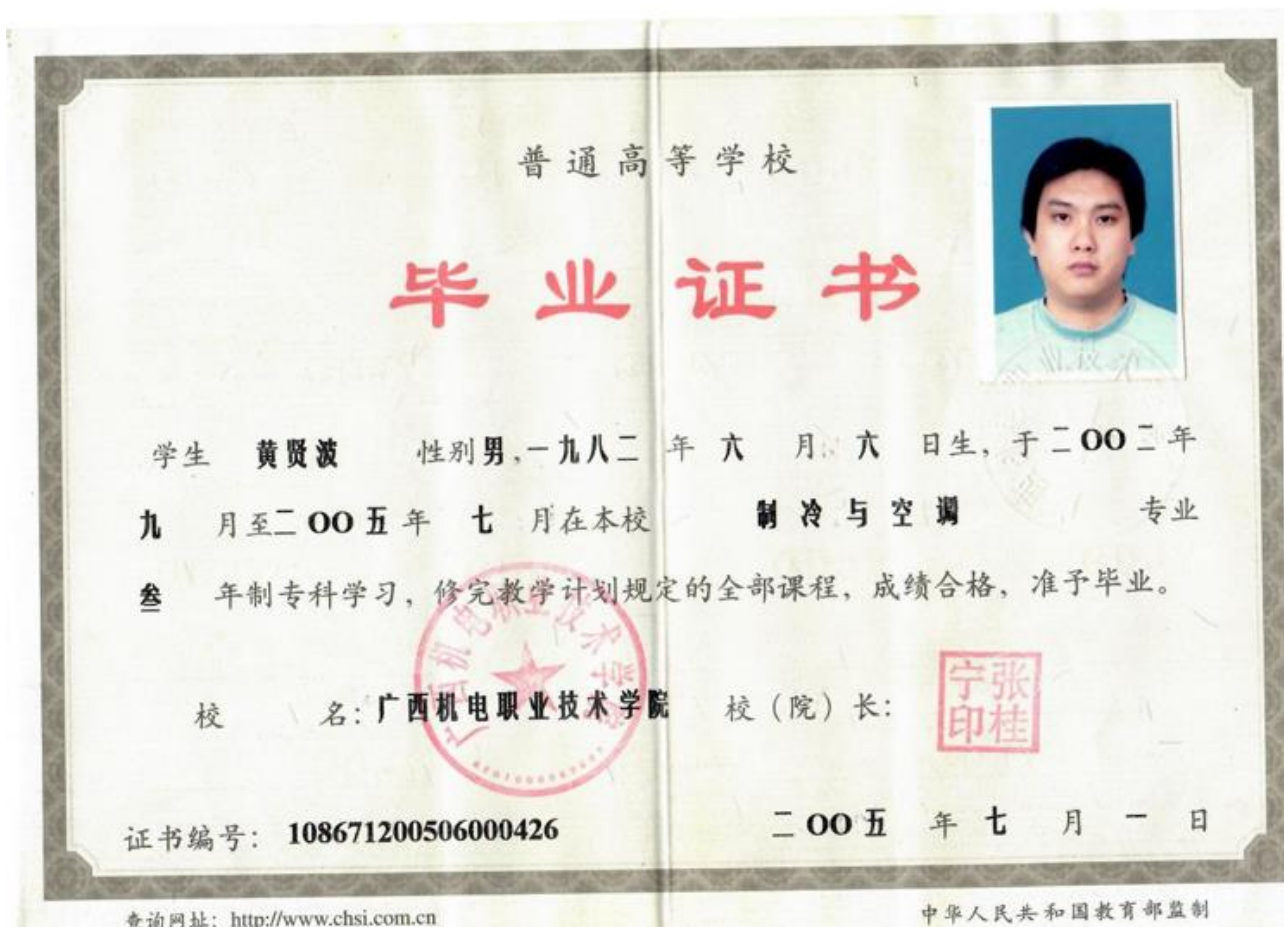 普通高等学校
毕业证书
学生 黄贤波 性别男,一九八二年六月六日生,于二〇〇二年
九月至二〇〇五年七月在本校 制冷与空调 专业
叁年制专科学习,修完教学计划规定的全部课程,成绩合格,准予毕业。
广西机电职业技术学院
张桂宁印
校名:广西机电职业技术学院 校(院)长:
证书编号:108671200506000426 二〇〇五年七月一日
查询网址:http://www.chsi.com.cn 中华人民共和国教育部监制